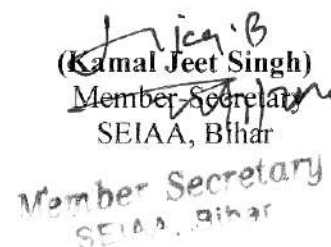 (Kamal Jeet Singh)
Member-Secretary
SEIAA, Bihar
Member Secretary
SEIAA, Bihar